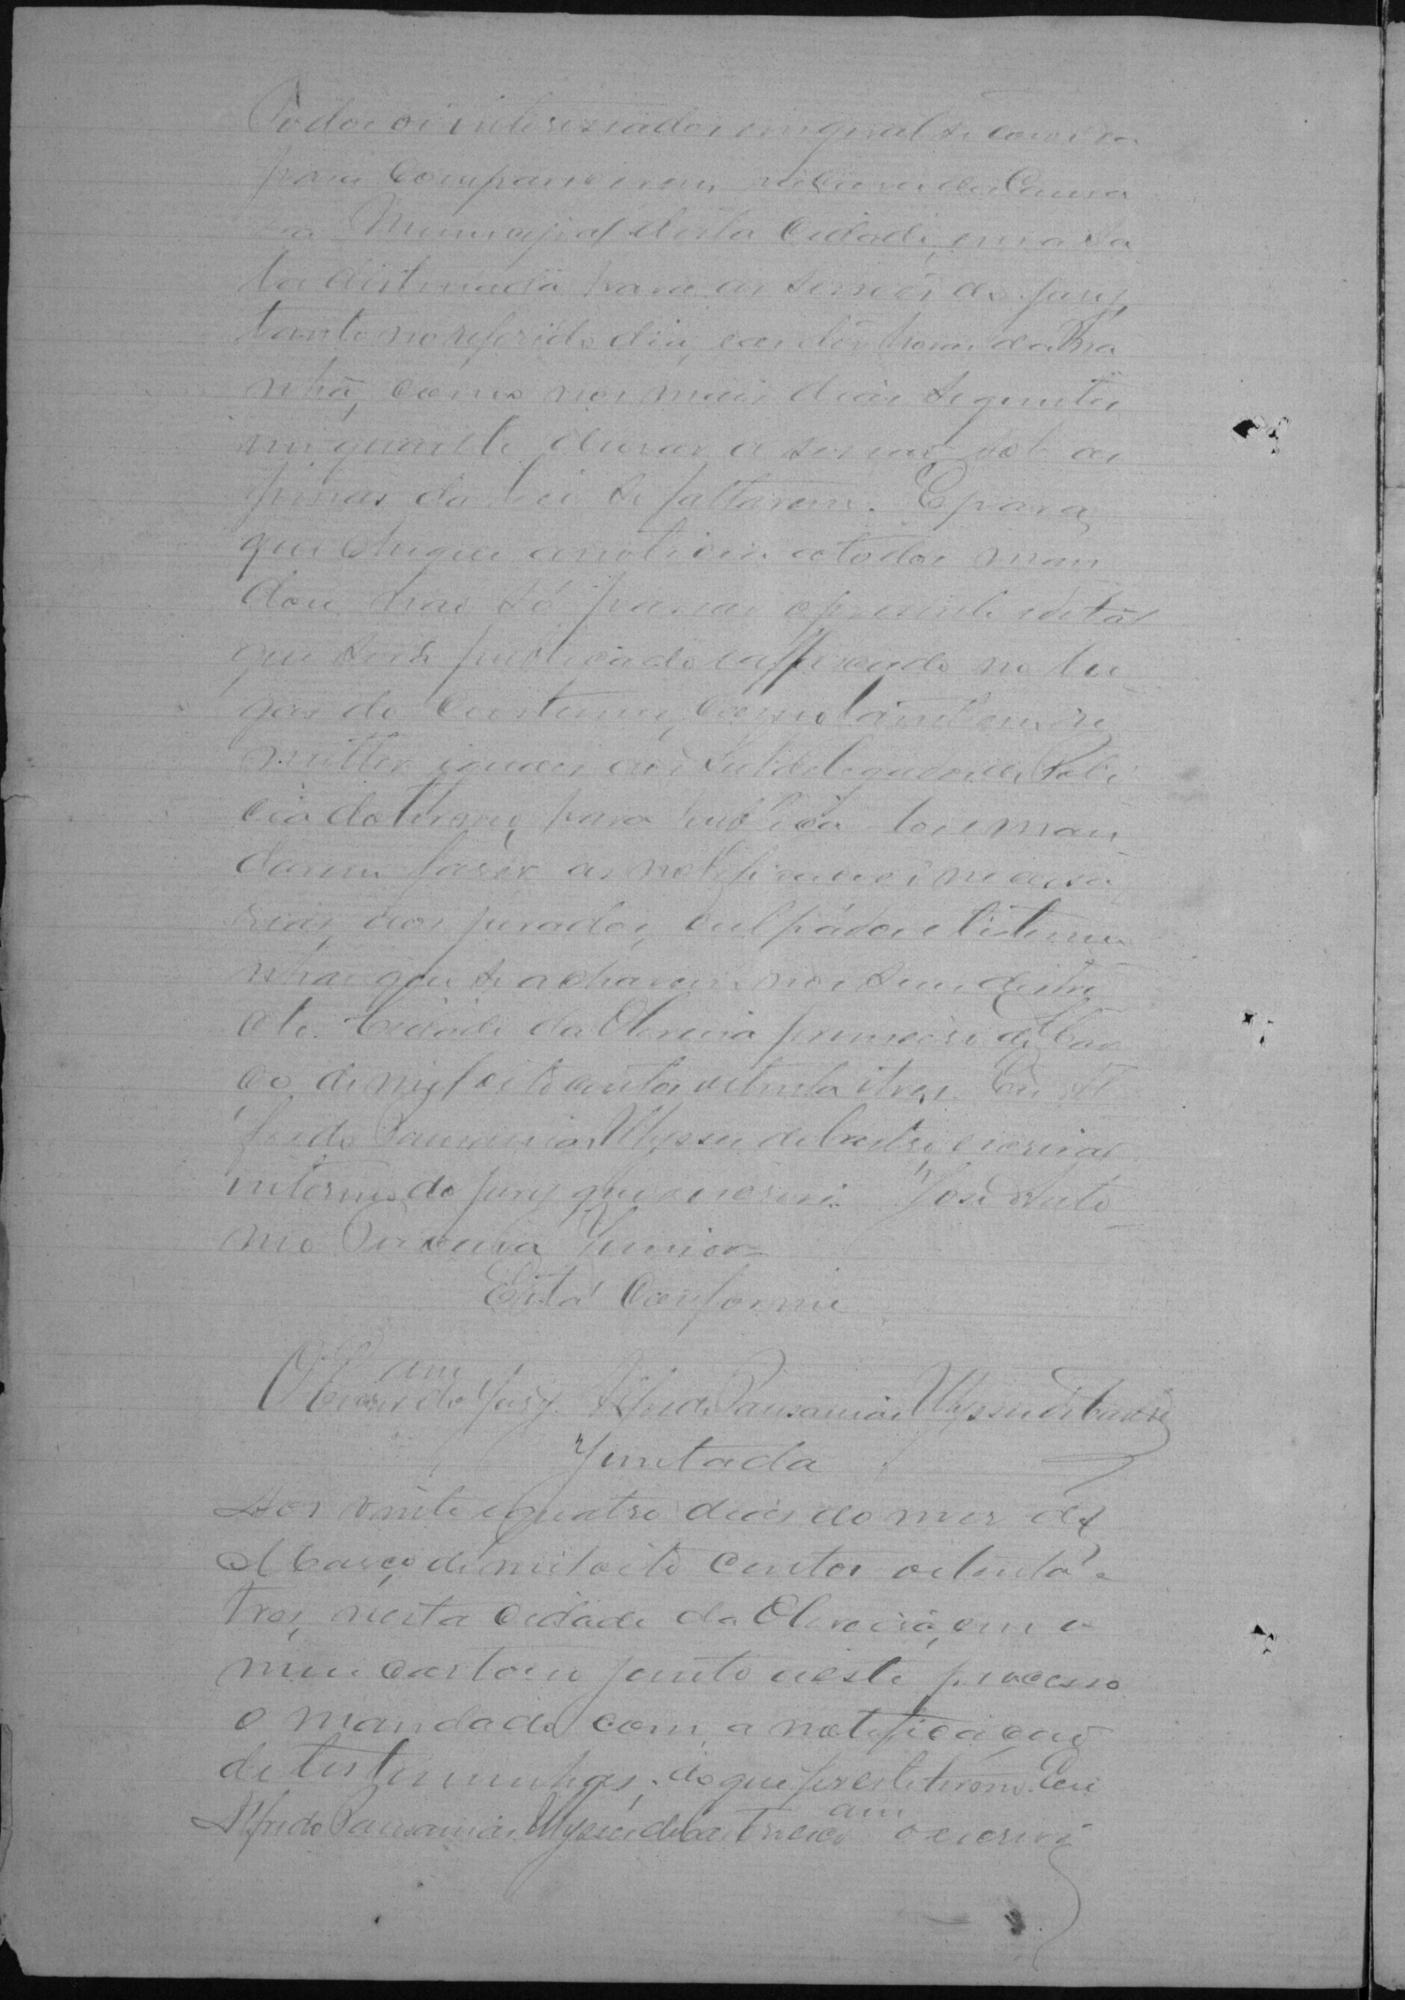 Todos os interessados em geral se convida
para comparecerem na casa da Cama
ra Municipal desta Cidade, em a sa
la destinada para as sessões do jury,
tanto no referido dia, e as dez horas da ma
nhã, como nos mais dias seguintes
em quanto durar a sessão sob as
penas da lei se faltarem. E para
que chegue a noticia a todos man
dou não só passar o presente edital
que será publicado e affixado no lu
gar do costume, como tambem re
metter iguaes aos subdelegados de Poli
cia do termo, para publica los e man
darem fazer as notificações necessa
rias aos jurados, culpados e testemu
nhas que se acharem nos seus distri
ctos. Cidade da Oliveira primeiro de Mar
ço de mil oito centos oitenta e tres. Eu Al
fredo Pausanias Ulysses de Castro escrivão
interino do jury que o escrevi. José Anto
nio Pereira Junior
Está Conforme
O Escr.am do Jury. Alfredo Pausanias Ulysses de Castro
Juntada
Aos vinte e quatro dias do mez de
Março de mil oito centos oitenta e
tres, nesta cidade da Oliveira, em o
meu cartorio junto a este processo
o mandado com a notificação
de testemunhas, do que fiz este termo. Eu
Alfredo Pausanias Ulysses de Castro escram o escrevi